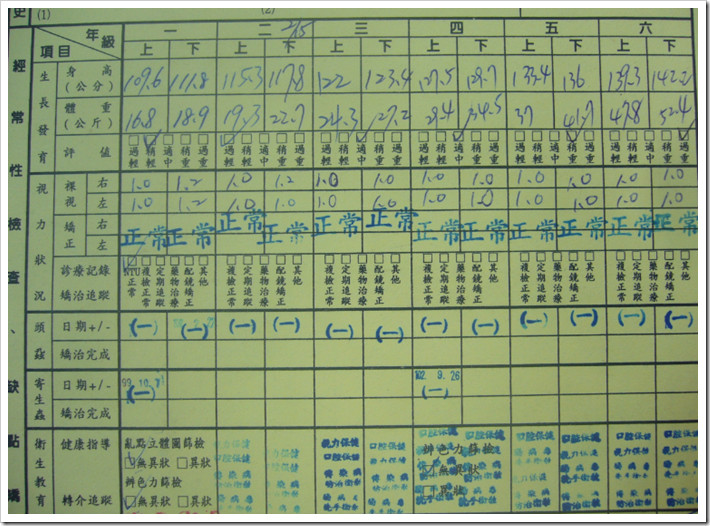 史 (1) (2)
年級 項目 一 二 三 四 五 六
上 下 上 下 上 下 上 下 上 下 上 下
經常性檢查、缺點矯
生長發育
身高(公分) 109.6 111.8 115.3 117.8 122 123.4 127.5 129.7 133.4 136 139.3 142.2
體重(公斤) 16.8 18.9 19.3 22.7 24.3 27.2 29.4 34.5 37 41.7 47.8 52.4
評值 □過輕 □稍輕 □適中 □稍重 □過重 □過輕 □稍輕 □適中 □稍重 □過重 □過輕 □稍輕 □適中 □稍重 □過重 □過輕 □稍輕 □適中 □稍重 □過重 □過輕 □稍輕 □適中 □稍重 □過重 □過輕 □稍輕 □適中 □稍重 □過重
視力狀況
裸視 右 1.0 1.2 1.0 1.2 1.0 1.0 1.0 1.0 1.0 1.0 1.0 1.0
左 1.0 1.2 1.0 1.0 1.0 1.0 1.0 1.0 1.0 1.0 1.0 1.0
矯正 右 左 正常 正常 正常 正常 正常 正常 正常 正常 正常 正常 正常 正常
診療記錄 矯治追蹤 □NTU正常 □複檢正常 □定期追蹤 □藥物治療 □配鏡矯正 □其他 □複檢正常 □定期追蹤 □藥物治療 □配鏡矯正 □其他 □複檢正常 □定期追蹤 □藥物治療 □配鏡矯正 □其他 □複檢正常 □定期追蹤 □藥物治療 □配鏡矯正 □其他 □複檢正常 □定期追蹤 □藥物治療 □配鏡矯正 □其他 □複檢正常 □定期追蹤 □藥物治療 □配鏡矯正 □其他
頭蝨
日期+/- (一) (一) (一) (一) (一) (一) (一) (一) (一) (一) (一) (一)
矯治完成
寄生蟲
日期+/- (一) 102. 9. 26
矯治完成
衛生教育
健康指導 亂點立體圖篩檢 視力保健 口腔保健 視力保健 口腔保健 辨色力篩檢
□無異狀 □異狀 □無異狀 □異狀
辨色力篩檢
轉介追蹤 □無異狀 □異狀